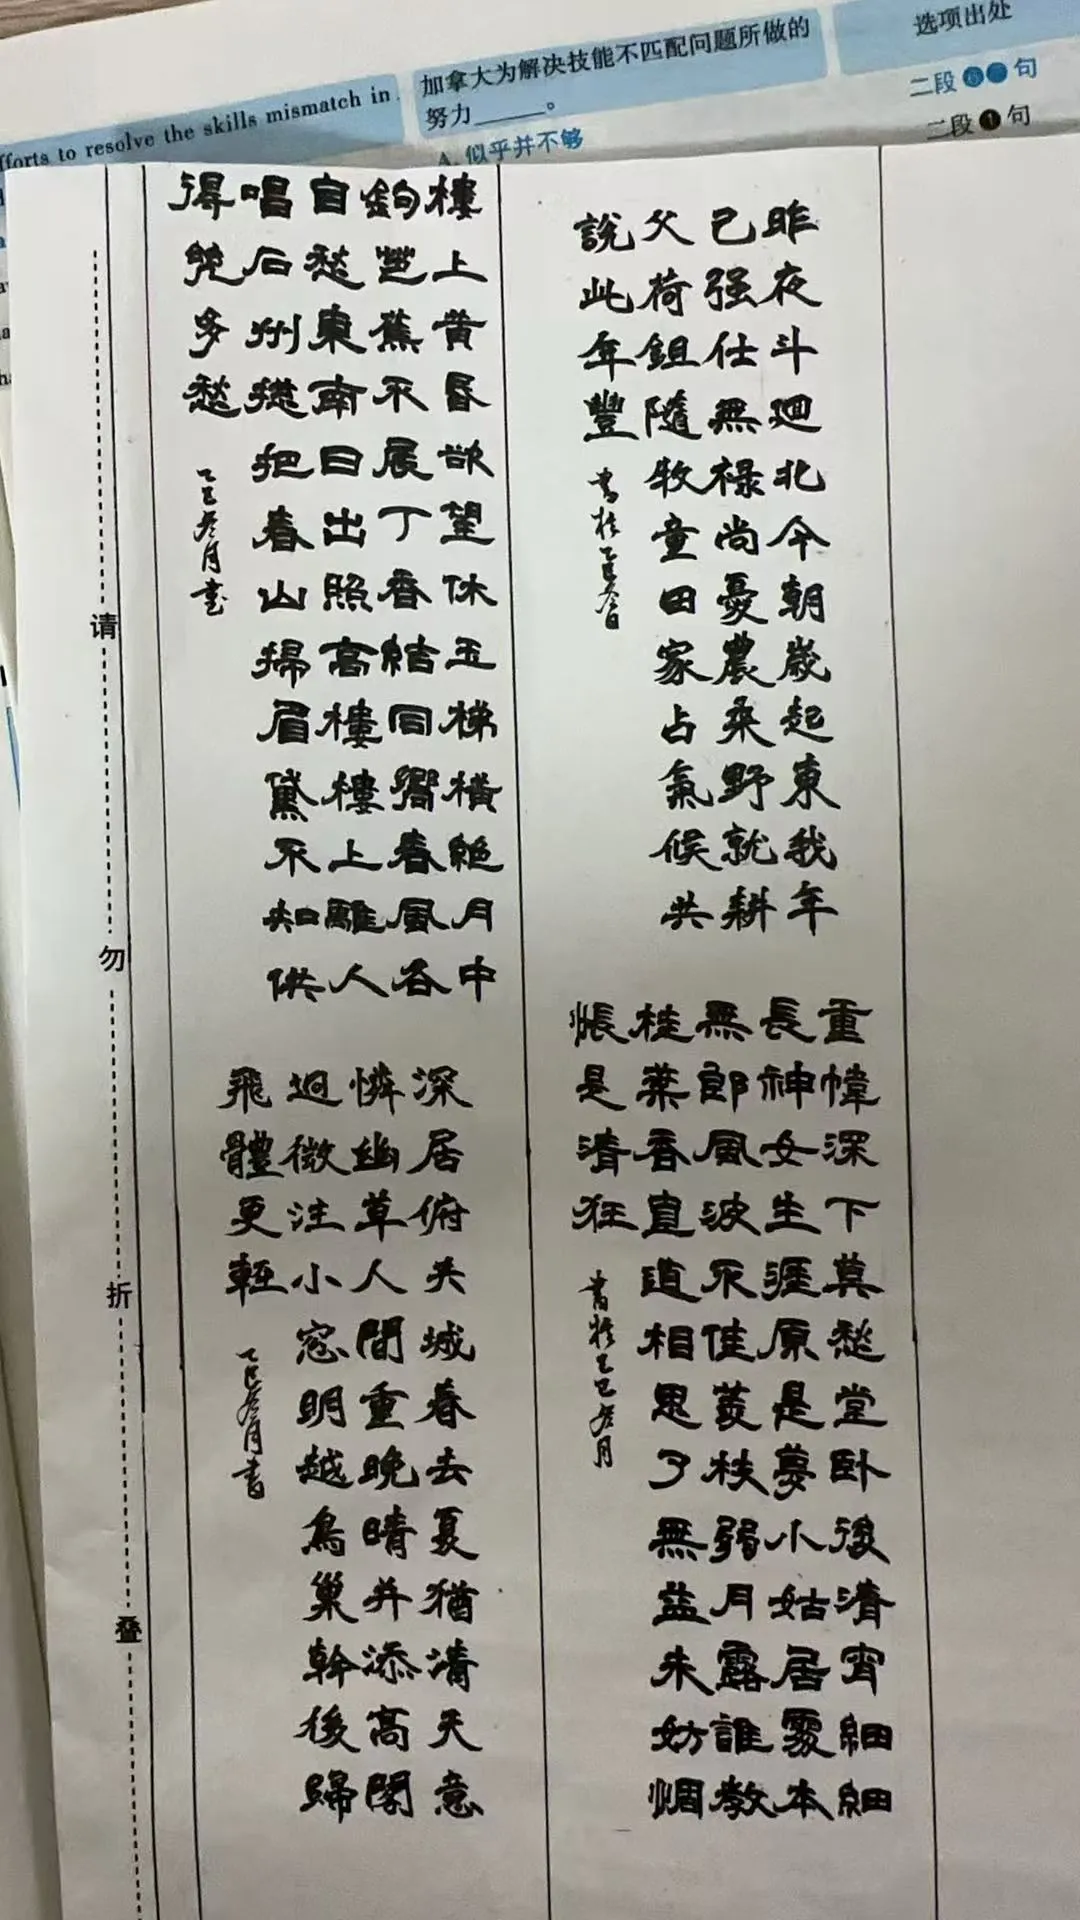 fforts to resolve the skills mismatch in
加拿大为解决技能不匹配问题所做的
努力______。
A. 似乎并不够
选项出处
二段 句
二段❶句
昨夜斗迴北今朝歲起東我年
已强仕無禄尚憂農桑野就耕
父荷鉏隨牧童田家占氣候共
說此年豐
書於乙巳冬日
重幃深下莫愁堂臥後清宵細細
長神女生涯原是夢小姑居處本
無郎風波不信菱枝弱月露誰教
桂葉香直道相思了無益未妨惆
悵是清狂
書於乙巳冬月
樓上黄昏欲望休玉梯橫絶月中
鉤芭蕉不展丁香結同嚮春風各
自愁東南日出照高樓樓上離人
唱石州總把春山掃眉黛不知供
得幾多愁
乙巳冬月書
深居俯夾城春去夏猶清天意
憐幽草人間重晚晴并添高閣
迥微注小窓明越鳥巢幹後歸
飛體更輕
乙巳冬月書
请勿折叠